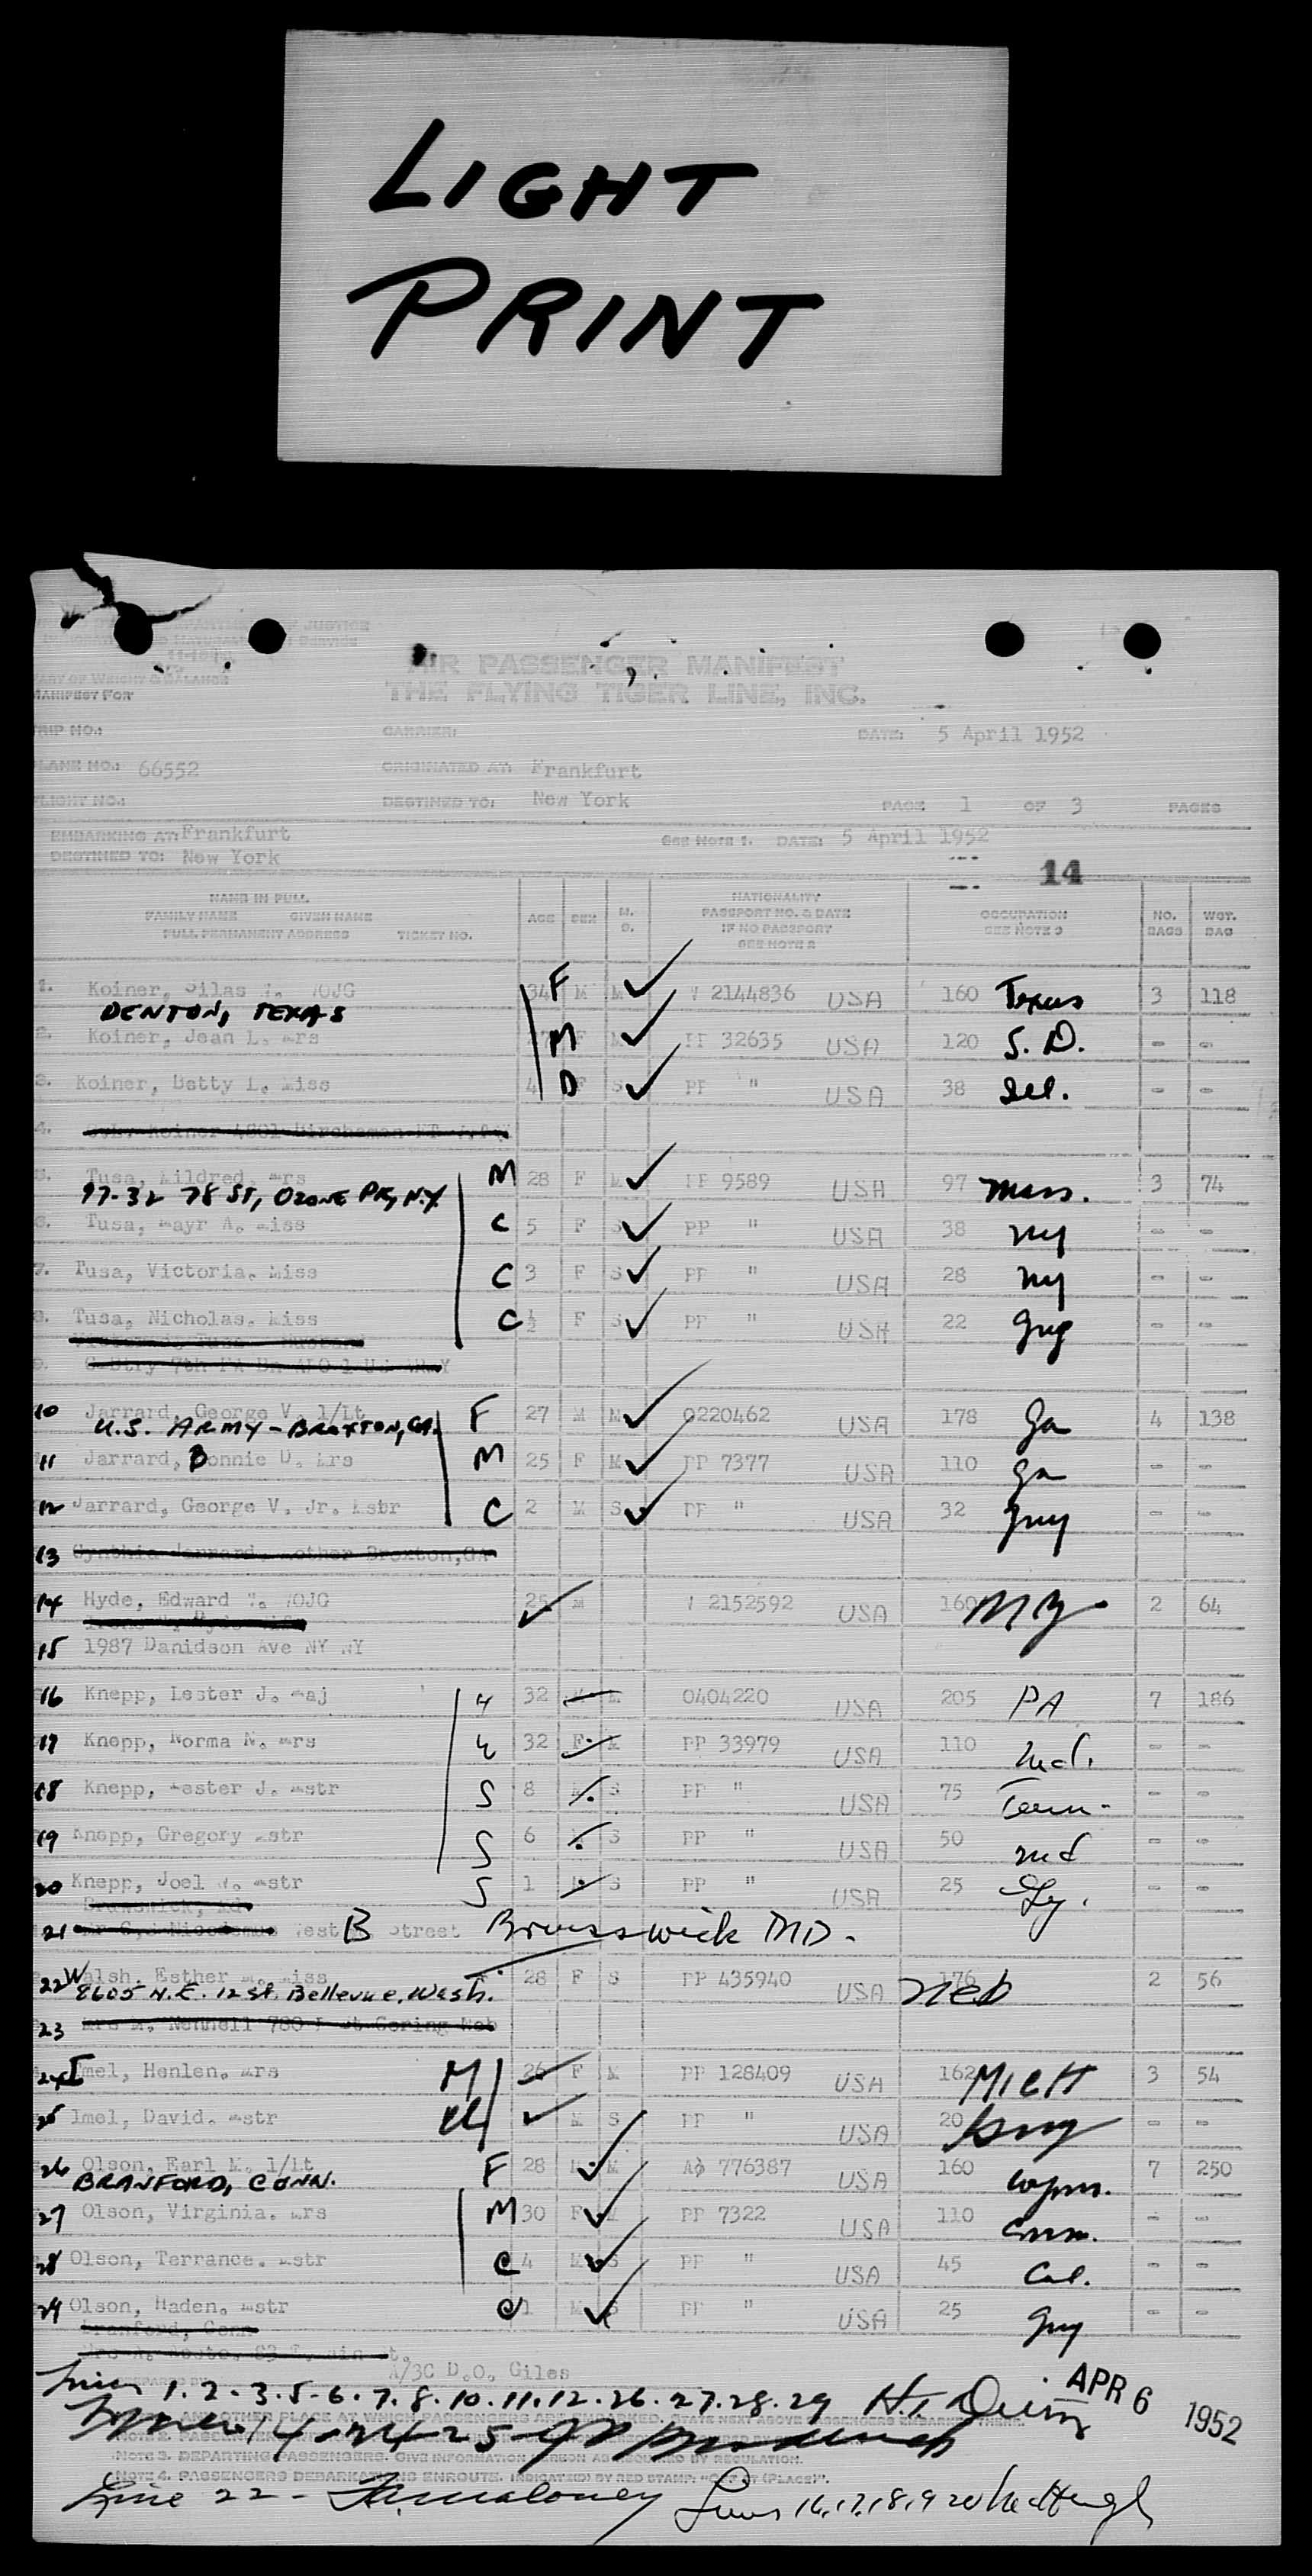 LIGHT
PRINT
AIR PASSENGER MANIFEST
THE FLYING TIGER LINE, INC.
MANIFEST FOR
TRIP NO.: CARRIER: DATE: 5 April 1952
PLANE NO.: 66552 ORIGINATED AT: Frankfurt
FLIGHT NO.: DESTINED TO: New York PAGE 1 OF 3 PAGES
EMBARKING AT: Frankfurt SEE NOTE 1. DATE: 5 April 1952
DESTINED TO: New York
14
NAME IN FULL
FAMILY NAME GIVEN NAME
FULL PERMANENT ADDRESS TICKET NO.
AGE SEX M. S.
NATIONALITY
PASSPORT NO. & DATE
IF NO PASSPORT
SEE NOTE 2
OCCUPATION
SEE NOTE 3
NO. BAGS
WGT. BAG
1. Koiner, Silas WOJG 34 M M F ✓ W 2144836 USA 160 Texas 3 118
DENTON, TEXAS
2. Koiner, Jean L. Mrs F M ✓ PP 32635 USA 120 S. D. - -
3. Koiner, Betty L. Miss 4 D F S ✓ PP " USA 38 - -
4.
5. Tusa, Mildred. Mrs M 28 F M ✓ PP 9589 USA 97 Mass. 3 74
97-32 78 ST, OZONE PK, N.Y.
6. Tusa, Mayr A. Miss C 5 F S ✓ PP " USA 38 NY - -
7. Tusa, Victoria. Miss C 3 F S ✓ PP " USA 28 NY - -
8. Tusa, Nicholas. Miss C ½ F S ✓ PP " USA 22 Gny - -
9.
10 Jarrard, George V. 1/Lt F 27 M M ✓ 0220462 USA 178 Ga 4 138
U.S. ARMY - BROXTON, GA.
11 Jarrard, Bonnie D. Mrs M 25 F M ✓ PP 7377 USA 110 Ga - -
12 Jarrard, George V. Jr. Mstr C 2 M S ✓ PP " USA 32 Gny - -
13 Cynthia Jarrard, Mother Broxton, GA
14 Hyde, Edward W. WOJG 25 M ✓ W 2152592 USA 160 NY 2 64
15 1987 Danidson Ave NY NY
16 Knepp, Lester J. Maj H 32 M M 0404220 USA 205 PA 7 186
17 Knepp, Norma N. Mrs W 32 F M PP 33979 USA 110 Md. - -
18 Knepp, Lester J. Mstr S 8 S PP " USA 75 Tenn. - -
19 Knepp, Gregory Mstr S 6 S PP " USA 50 Md - -
20 Knepp, Joel Mstr S 1 S PP " USA 25 Gy. - -
21 West B Street Brunswick MD.
22 Walsh, Esther M. Miss 28 F S PP 435940 USA 176 Neb 2 56
8605 N.E. 12 St. Bellevue, Wash.
23
24 Imel, Henlen. Mrs M 26 F M PP 128409 USA 162 MICH 3 54
25 Imel, David. Mstr ch ✓ M S PP " USA 20 Gny - -
26 Olson, Earl M. 1/Lt F 28 M M ✓ AO 776387 USA 160 7 250
BRANFORD, CONN.
27 Olson, Virginia. Mrs M 30 F ✓ PP 7322 USA 110 Conn. - -
28 Olson, Terrance. Mstr C 4 M S ✓ PP " USA 45 Cal. - -
29 Olson, Haden. Mstr C 1 M S ✓ PP " USA 25 Gny - -
Branford, Conn
A/3C D.O. Giles
Lines 1.2.3.5.6.7.8.10.11.12.26.27.28.29
APR 6 1952
14 - 24 - 25
NOTE 3. DEPARTING PASSENGERS. GIVE INFORMATION HEREON AS REQUIRED BY REGULATION.
NOTE 4. PASSENGERS DEBARKATIONS ENROUTE. INDICATED BY RED STAMP: "OFF AT (PLACE)".
Line 22 - F.A. Maloney Lines 16, 17, 18, 19 20